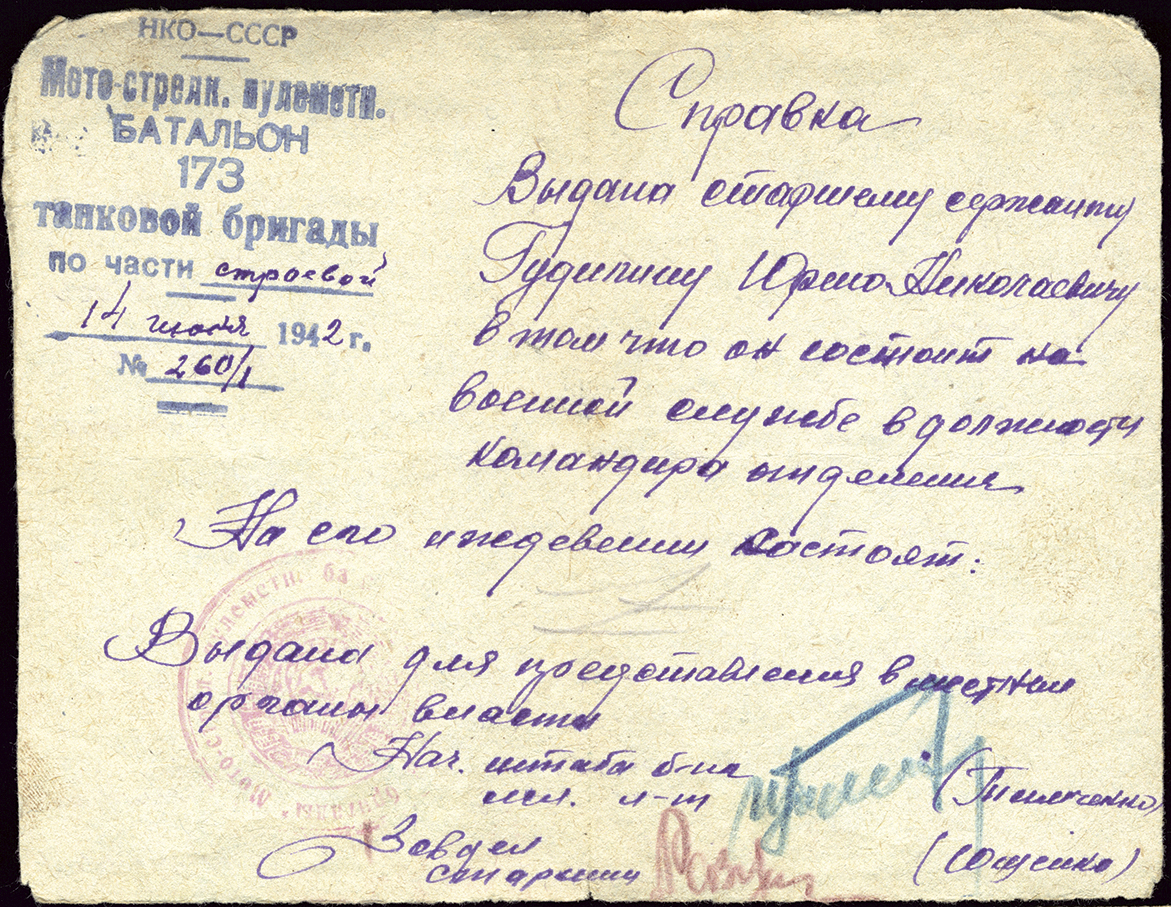 НКО—СССР
Мото-стрелк. пулеметн.
БАТАЛЬОН
173
танковой бригады
по части строевой
14 июля 1942 г.
№ 260/1
Справка
Выдана старшему сержанту
Гудилину Юрию Николаевичу
в том что он состоит на
военной службе в должности
командира отделения
На его иждевении состоят:
Выдана для представления в местные
органы власти
Нач. штаба б-на
мл. л-т
Завдел
старшина (Ющенко)
бригады